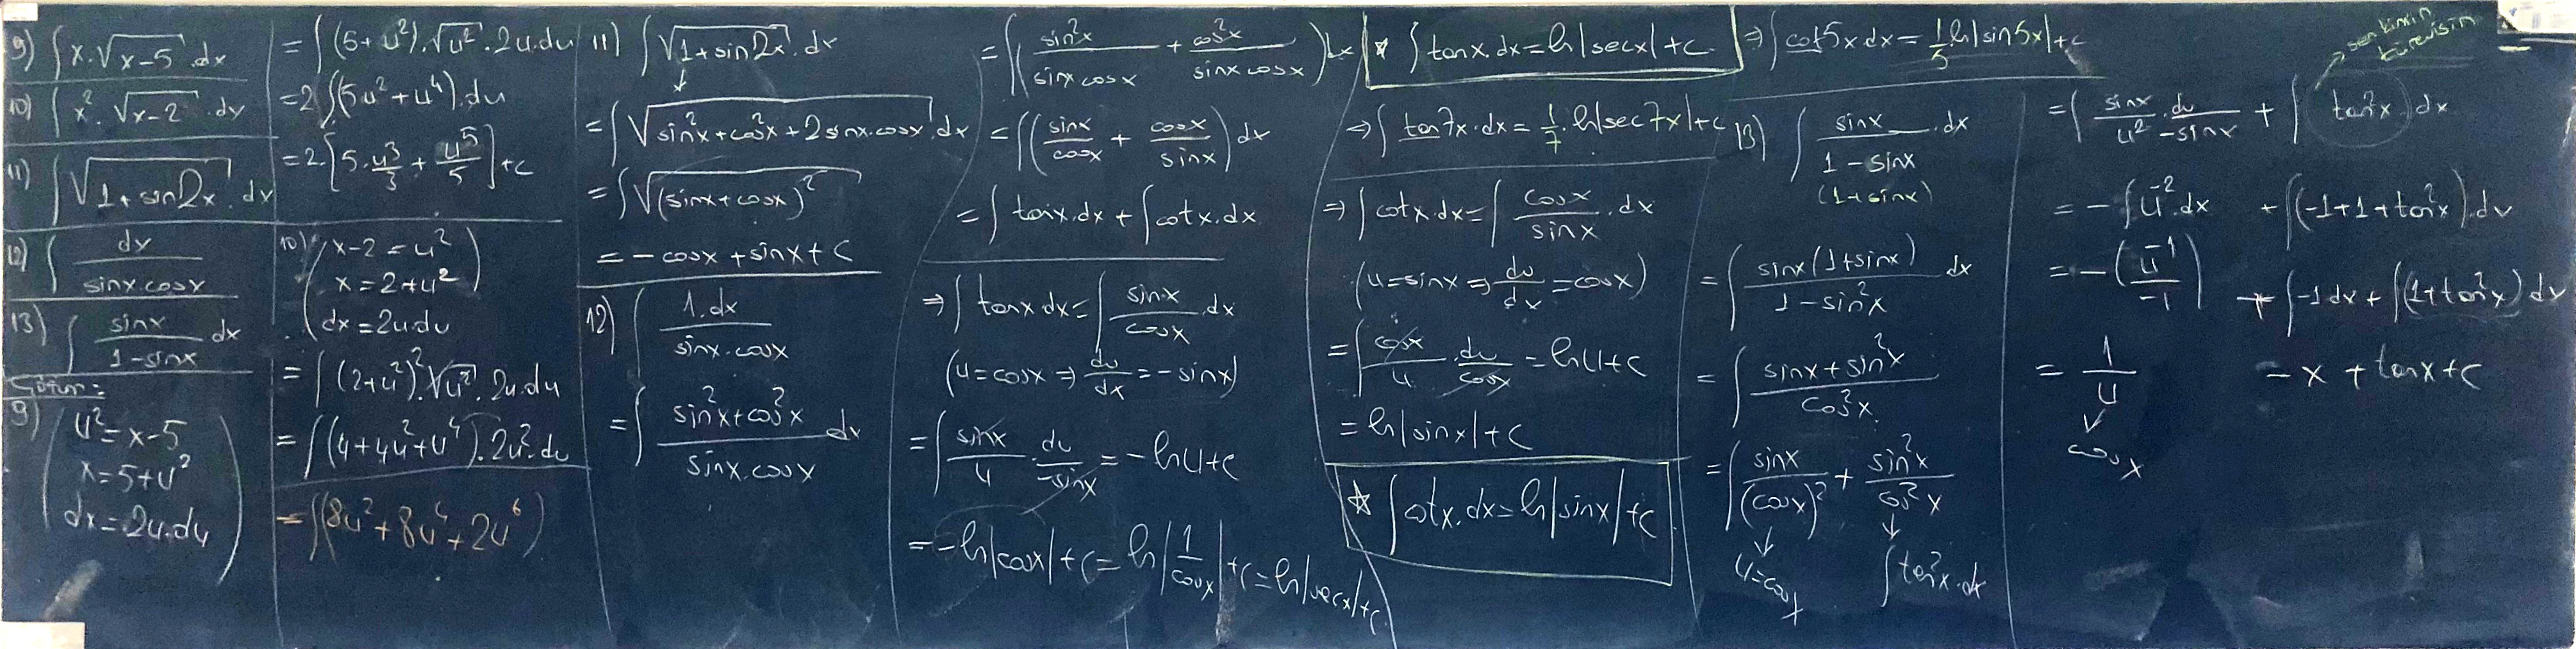 9) ∫ x.√(x-5) .dx
10) ∫ x².√(x-2) .dx
11) ∫ √(1+sin2x) .dx
12) ∫ dx/(sinx.cosx)
13) ∫ sinx/(1-sinx) dx
Çözüm:
9) (u²=x-5
x=5+u²
dx=2u.du)
= ∫(5+u²).√u².2u.du
=2∫(5u²+u⁴).du
=2.[5.u³/3 + u⁵/5]+c
10) (x-2=u²
x=2+u²
dx=2u.du)
= ∫(2+u²)².√u².2u.du
= ∫(4+4u²+u⁴).2u².du
= ∫(8u²+8u⁴+2u⁶)
11) ∫√(1+sin2x).dx
↓
= ∫√(sin²x+cos²x+2sinx.cosx).dx
= ∫√(sinx+cosx)²
= -cosx+sinx+c
12) ∫ 1.dx/(sinx.cosx)
= ∫ (sin²x+cos²x)/(sinx.cosx) dx
= ∫(sin²x/(sinxcosx) + cos²x/(sinxcosx))dx
= ∫(sinx/cosx + cosx/sinx)dx
= ∫tanx.dx + ∫cotx.dx
⇒ ∫tanx.dx = ∫ sinx/cosx .dx
(u=cosx ⇒ du/dx = -sinx)
= ∫ sinx/u . du/-sinx = -lnu+c
= -ln|cosx|+c = ln|1/cosx|+c = ln|secx|+c
* ∫tanx.dx = ln|secx|+c.
⇒ ∫tan7x.dx = 1/7.ln|sec7x|+c
⇒ ∫cotx.dx = ∫ cosx/sinx .dx
(u=sinx ⇒ du/dx = cosx)
= ∫ cosx/u . du/cosx = lnu+c
= ln|sinx|+c
☆ ∫cotx.dx = ln|sinx|+c
⇒ ∫cot5x dx = 1/5.ln|sin5x|+c
13) ∫ sinx/(1-sinx) .dx
(1+sinx)
= ∫ sinx(1+sinx)/(1-sin²x) dx
= ∫ (sinx+sin²x)/cos²x.
= ∫ sinx/(cosx)² + sin²x/cos²x
↓ ↓
u=cosx ∫tan²x.dx
→ sen kimin
türevisin
= ∫ sinx/u² . du/-sinx + ∫ tan²x.dx
= -∫u⁻².dx + ∫(-1+1+tan²x).dx
= -(u⁻¹/-1) + ∫-1dx + ∫(1+tan²x)dx
= 1/u -x+tanx+c
↓
cosx